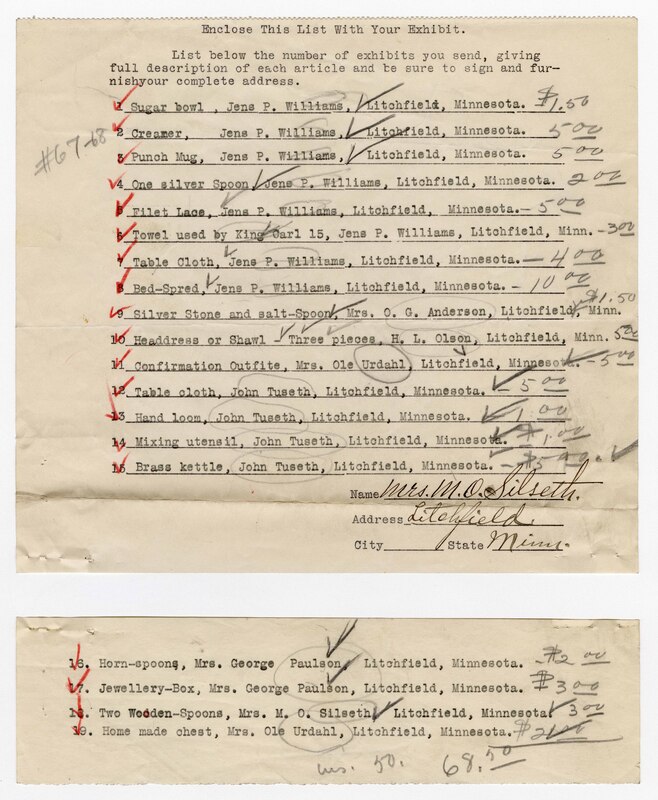 Enclose This List With Your Exhibit.
List below the number of exhibits you send, giving
full description of each article and be sure to sign and fur-
nishyour complete address.
#67-68
1 Sugar bowl , Jens P. Williams, Litchfield, Minnesota. $1.50
2 Creamer, Jens P. Williams, Litchfield, Minnesota. 5.00
3 Punch Mug, Jens P. Williams, Litchfield, Minnesota. 5.00
4 One silver Spoon, Jens P. Williams, Litchfield, Minnesota. 2.00
5 Filet Lace, Jens P. Williams, Litchfield, Minnesota. - 5.00
6 Towel used by King Carl 15, Jens P. Williams, Litchfield, Minn. - 3.00
7 Table Cloth, Jens P. Williams, Litchfield, Minnesota. - 4.00
8 Bed-Spred, Jens P. Williams, Litchfield, Minnesota. - 10.00
9 Silver Stone and salt-Spoon, Mrs. O. G. Anderson, Litchfield, Minn. $1.50
10 Headdress or Shawl - Three pieces, H. L. Olson, Litchfield, Minn. 5.00
11 Confirmation Outfite, Mrs. Ole Urdahl, Litchfield, Minnesota. - 5.00
12 Table cloth, John Tuseth, Litchfield, Minnesota. - 5.00
13 Hand loom, John Tuseth, Litchfield, Minnesota. 1.00
14 Mixing utensil, John Tuseth, Litchfield, Minnesota. $1.00
15 Brass kettle, John Tuseth, Litchfield, Minnesota. - $5.00
Name Mrs. M. O. Silseth.
Address Litchfield.
City State Minn.
16. Horn-spoons, Mrs. George Paulson, Litchfield, Minnesota. $2.00
17. Jewellery-Box, Mrs. George Paulson, Litchfield, Minnesota. $3.00
18. Two Wooden-Spoons, Mrs. M. O. Silseth, Litchfield, Minnesota. 3.00
19. Home made chest, Mrs. Ole Urdahl, Litchfield, Minnesota.
ins. 50. 68.50